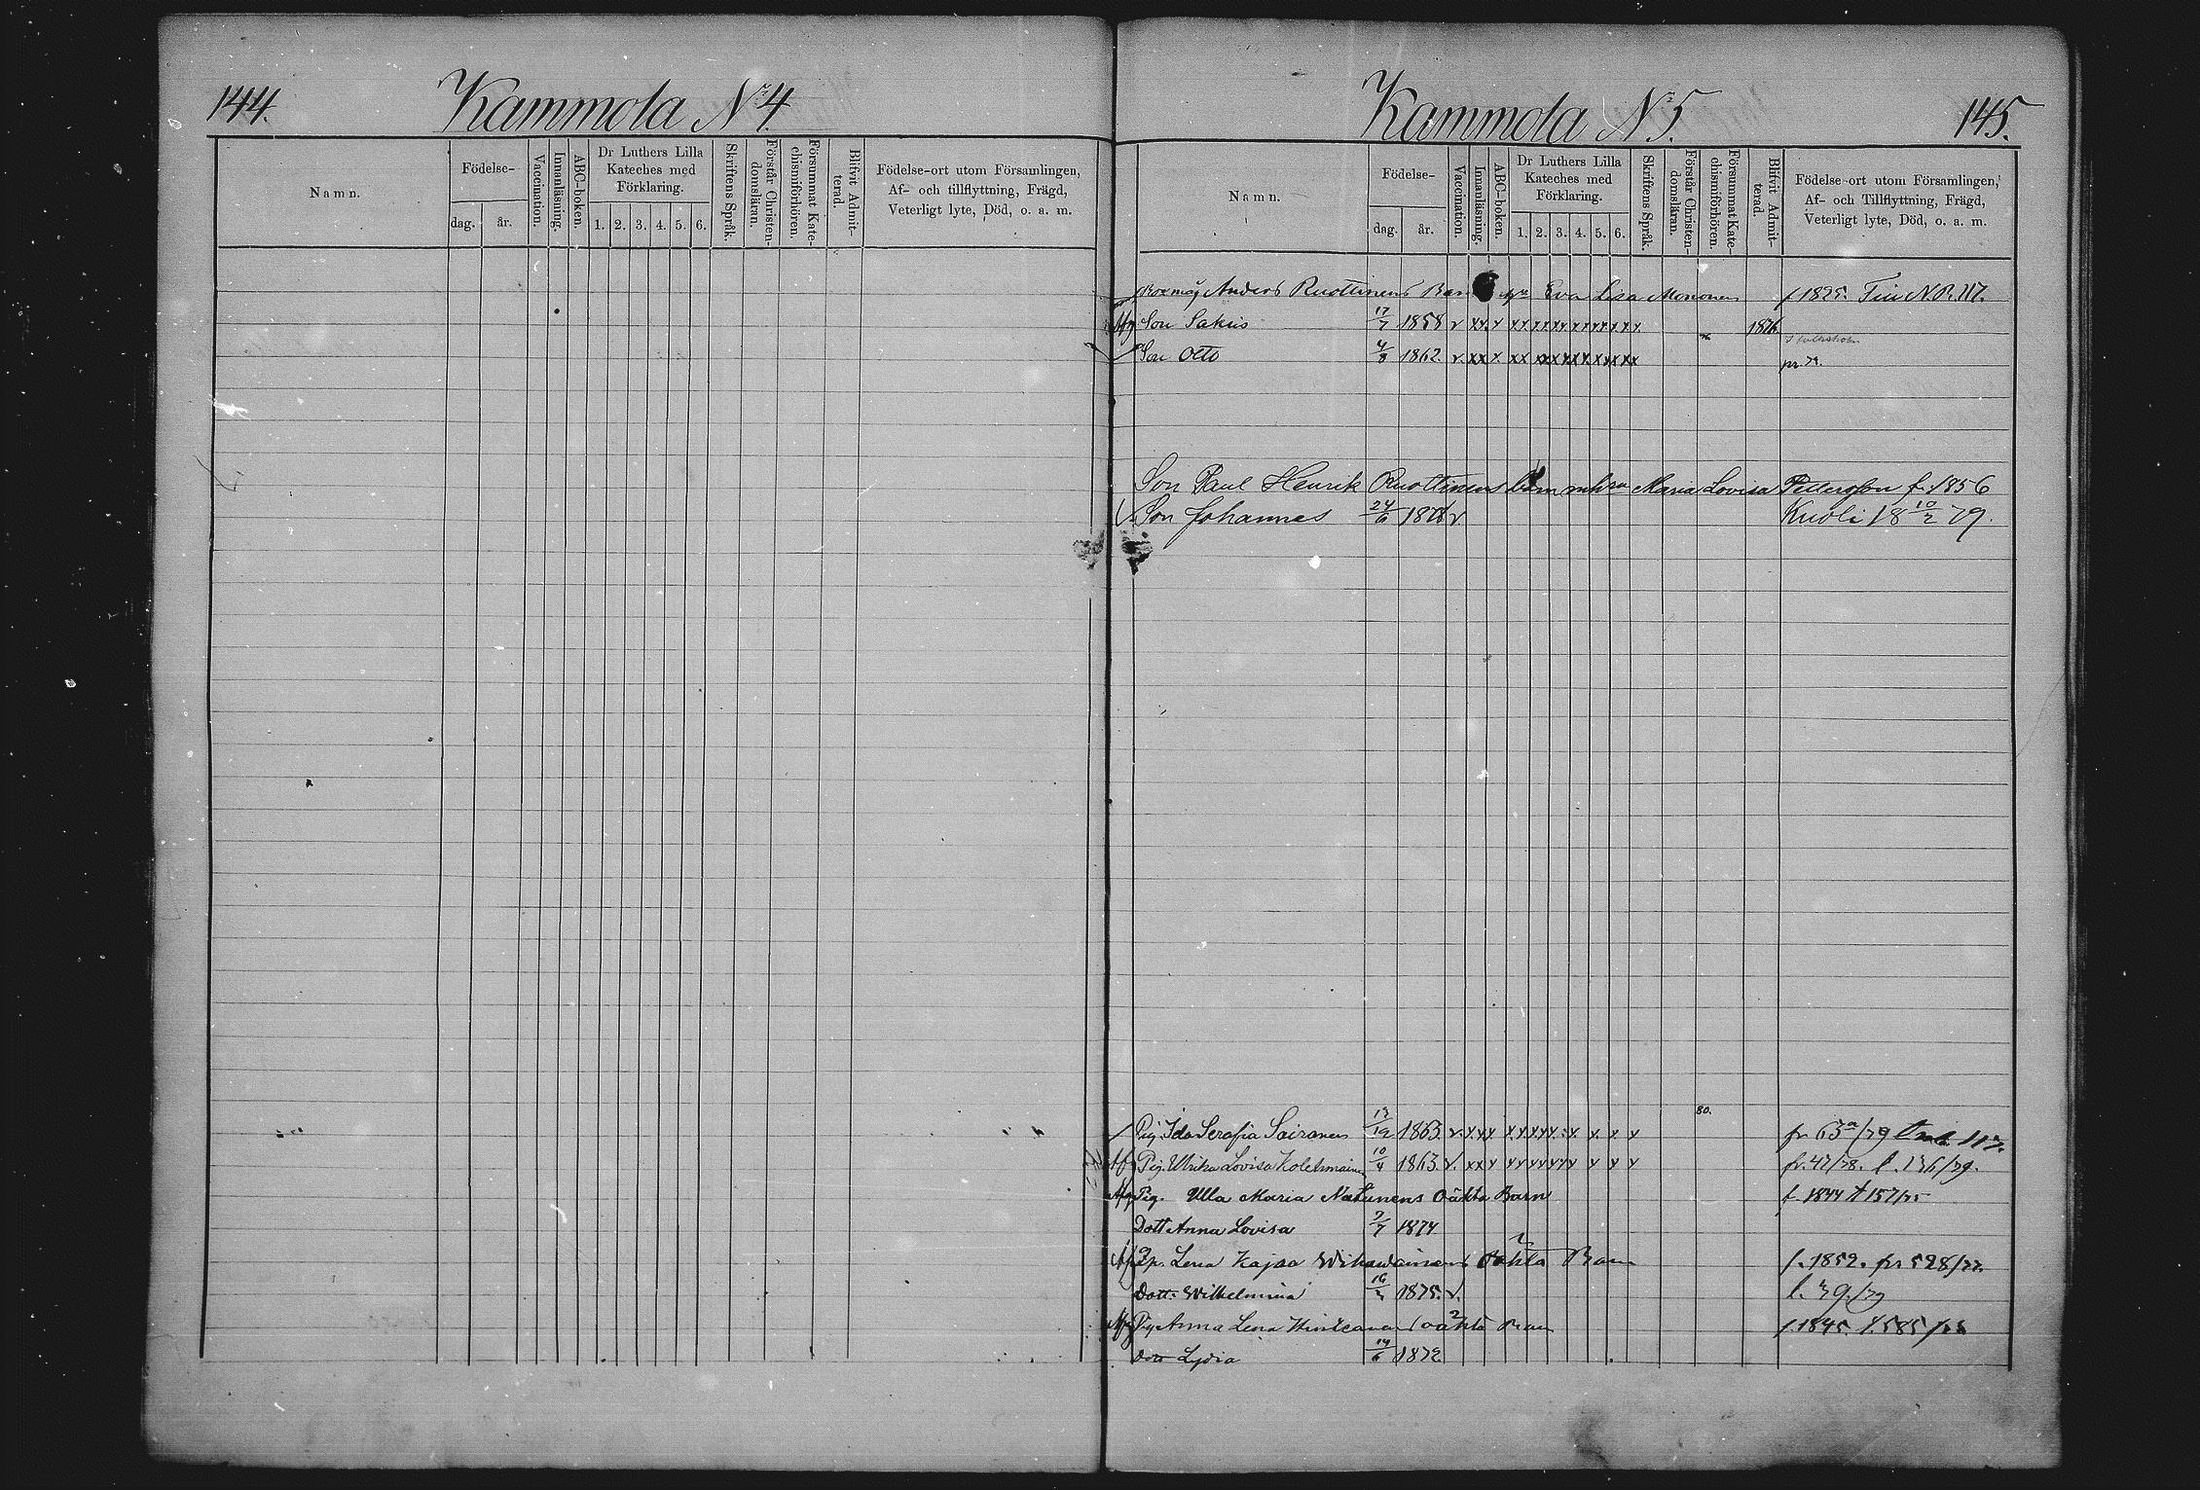 144. Kammola № 4
Namn.
Födelse-
dag. år.
Vaccination.
Innanläsning.
ABC-boken.
Dr Luthers Lilla
Kateches med
Förklaring.
1. 2. 3. 4. 5. 6.
Skriftens Språk.
Förstår Christen-
domsläran.
Försummat Kate-
chismiförhören.
Blifvit Admit-
terad.
Födelse-ort utom Församlingen,
Af- och tillflyttning, Frägd,
Veterligt lyte, Död, o. a. m.
Kammola № 5. 145.
Namn.
Födelse-
dag. år.
Vaccination.
Innanläsning.
ABC-boken.
Dr Luthers Lilla
Kateches med
Förklaring.
1. 2. 3. 4. 5. 6.
Skriftens Språk.
Förstår Christen-
domsläran.
Försummat Kate-
chismiförhören.
Blifvit Admit-
terad.
Födelse-ort utom Församlingen,
Af- och Tillflyttning, Frägd,
Veterligt lyte, Död, o. a. m.
Anders Ruottinens Eva Lisa Mononen f 1825.
Son Sakris 17/7 1858 v xx x xx xx xx xx xx xx x 1876
Son Otto 4/8 1862. v xx x xx xx xx xx xx xx xx
Son Paul Henrik Ruottinens Maria Lovisa Pettersson f. 1856
Son Johannes 24/6 1878 v Kuoli 18 10/2 79.
80.
Pig. Ida Serafia Sairanen 13/12 1863. v. x. xx x x x x x x x x x fr 63a/79
Pig. Ulrika Lovisa Kolehmainen 10/4 1863. v. xx x x x x x x x x x x fr. 47/78. l. 136/79.
Pig. Ulla Maria oäkta Barn f 1844 157/75
Dott Anna Lovisa 7/7 1874
Lena Kajsa oäkta Barn f. 1852. fr 528/77.
Dott. Wilhelmina 16/2 1875. v. l. 39/79
Pig Anna Lena oäkta Barn f. 1845.
Dott Lydia 14/6 1872